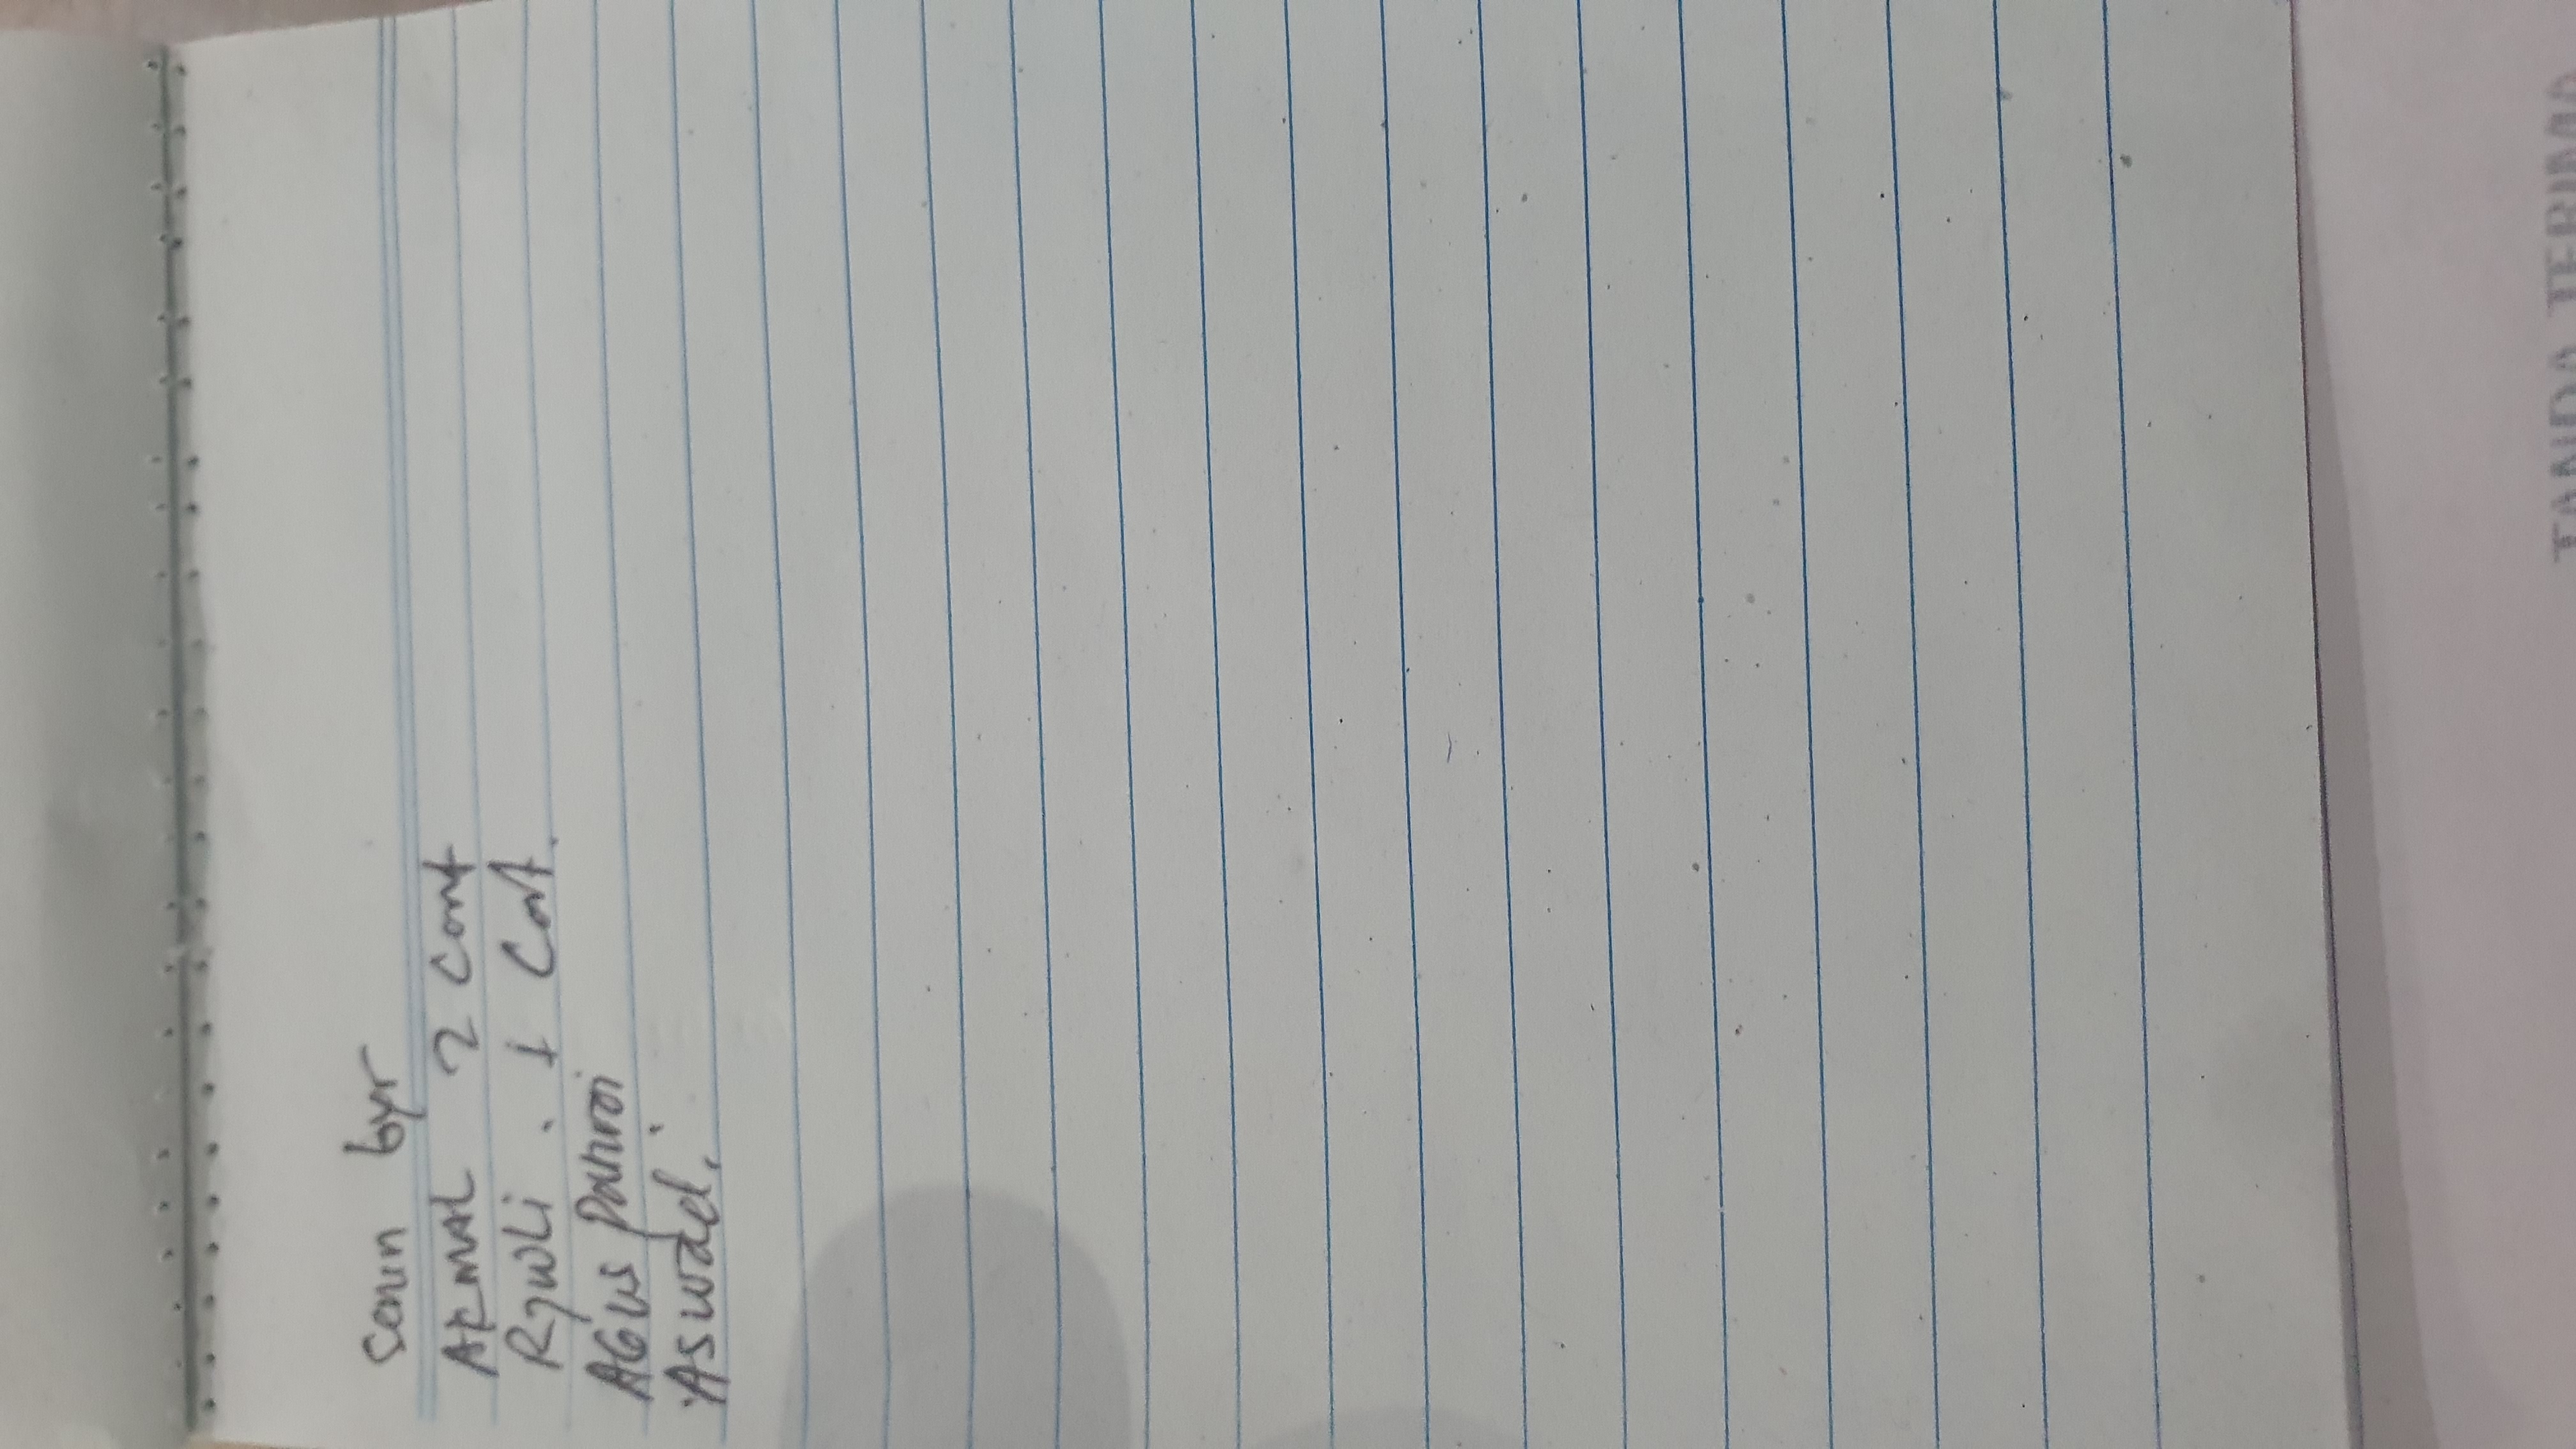 Senin byr
AKMAL 2 Cont
Rzwli . 1 Cont.
AGUS Pahroi
Aswad.
TANDA TERIMA